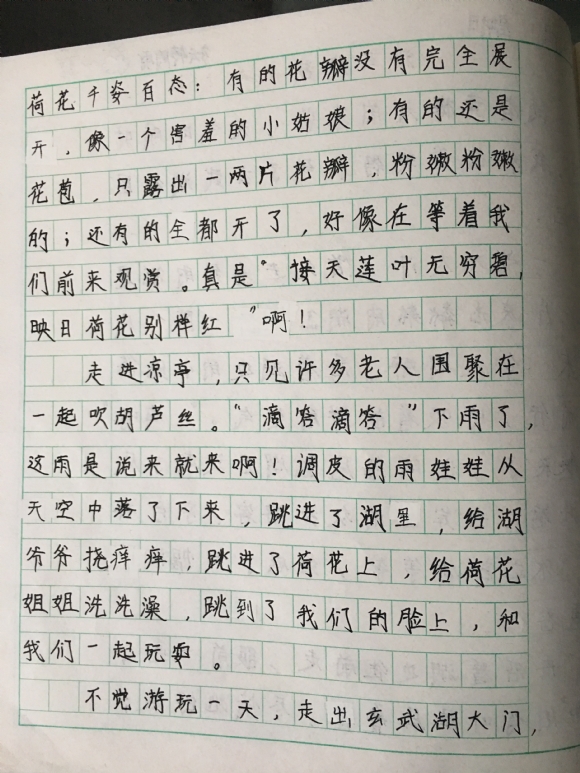 荷花千姿百态：有的花瓣没有完全展
开，像一个害羞的小姑娘；有的还是
花苞，只露出一两片花瓣，粉嫩粉嫩
的；还有的全都开了，好像在等着我
们前来观赏。真是“接天莲叶无穷碧，
映日荷花别样红”啊！
走进凉亭，只见许多老人围聚在
一起吹胡芦丝。“滴答滴答”下雨了，
这雨是说来就来啊！调皮的雨娃娃从
天空中落了下来，跳进了湖里，给湖
爷爷挠痒痒，跳进了荷花上，给荷花
姐姐洗洗澡，跳到了我们的脸上，和
我们一起玩耍。
不觉游玩一天，走出玄武湖大门，